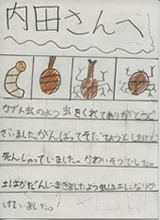 内田さんへ
カブト虫のよう虫をくれてありがとうご
ざいました。がんばってそだてようとしたけど
死んじゃっていました。かわいそうでした。
土はかだんにまきました。よう虫は土しな
けていました。